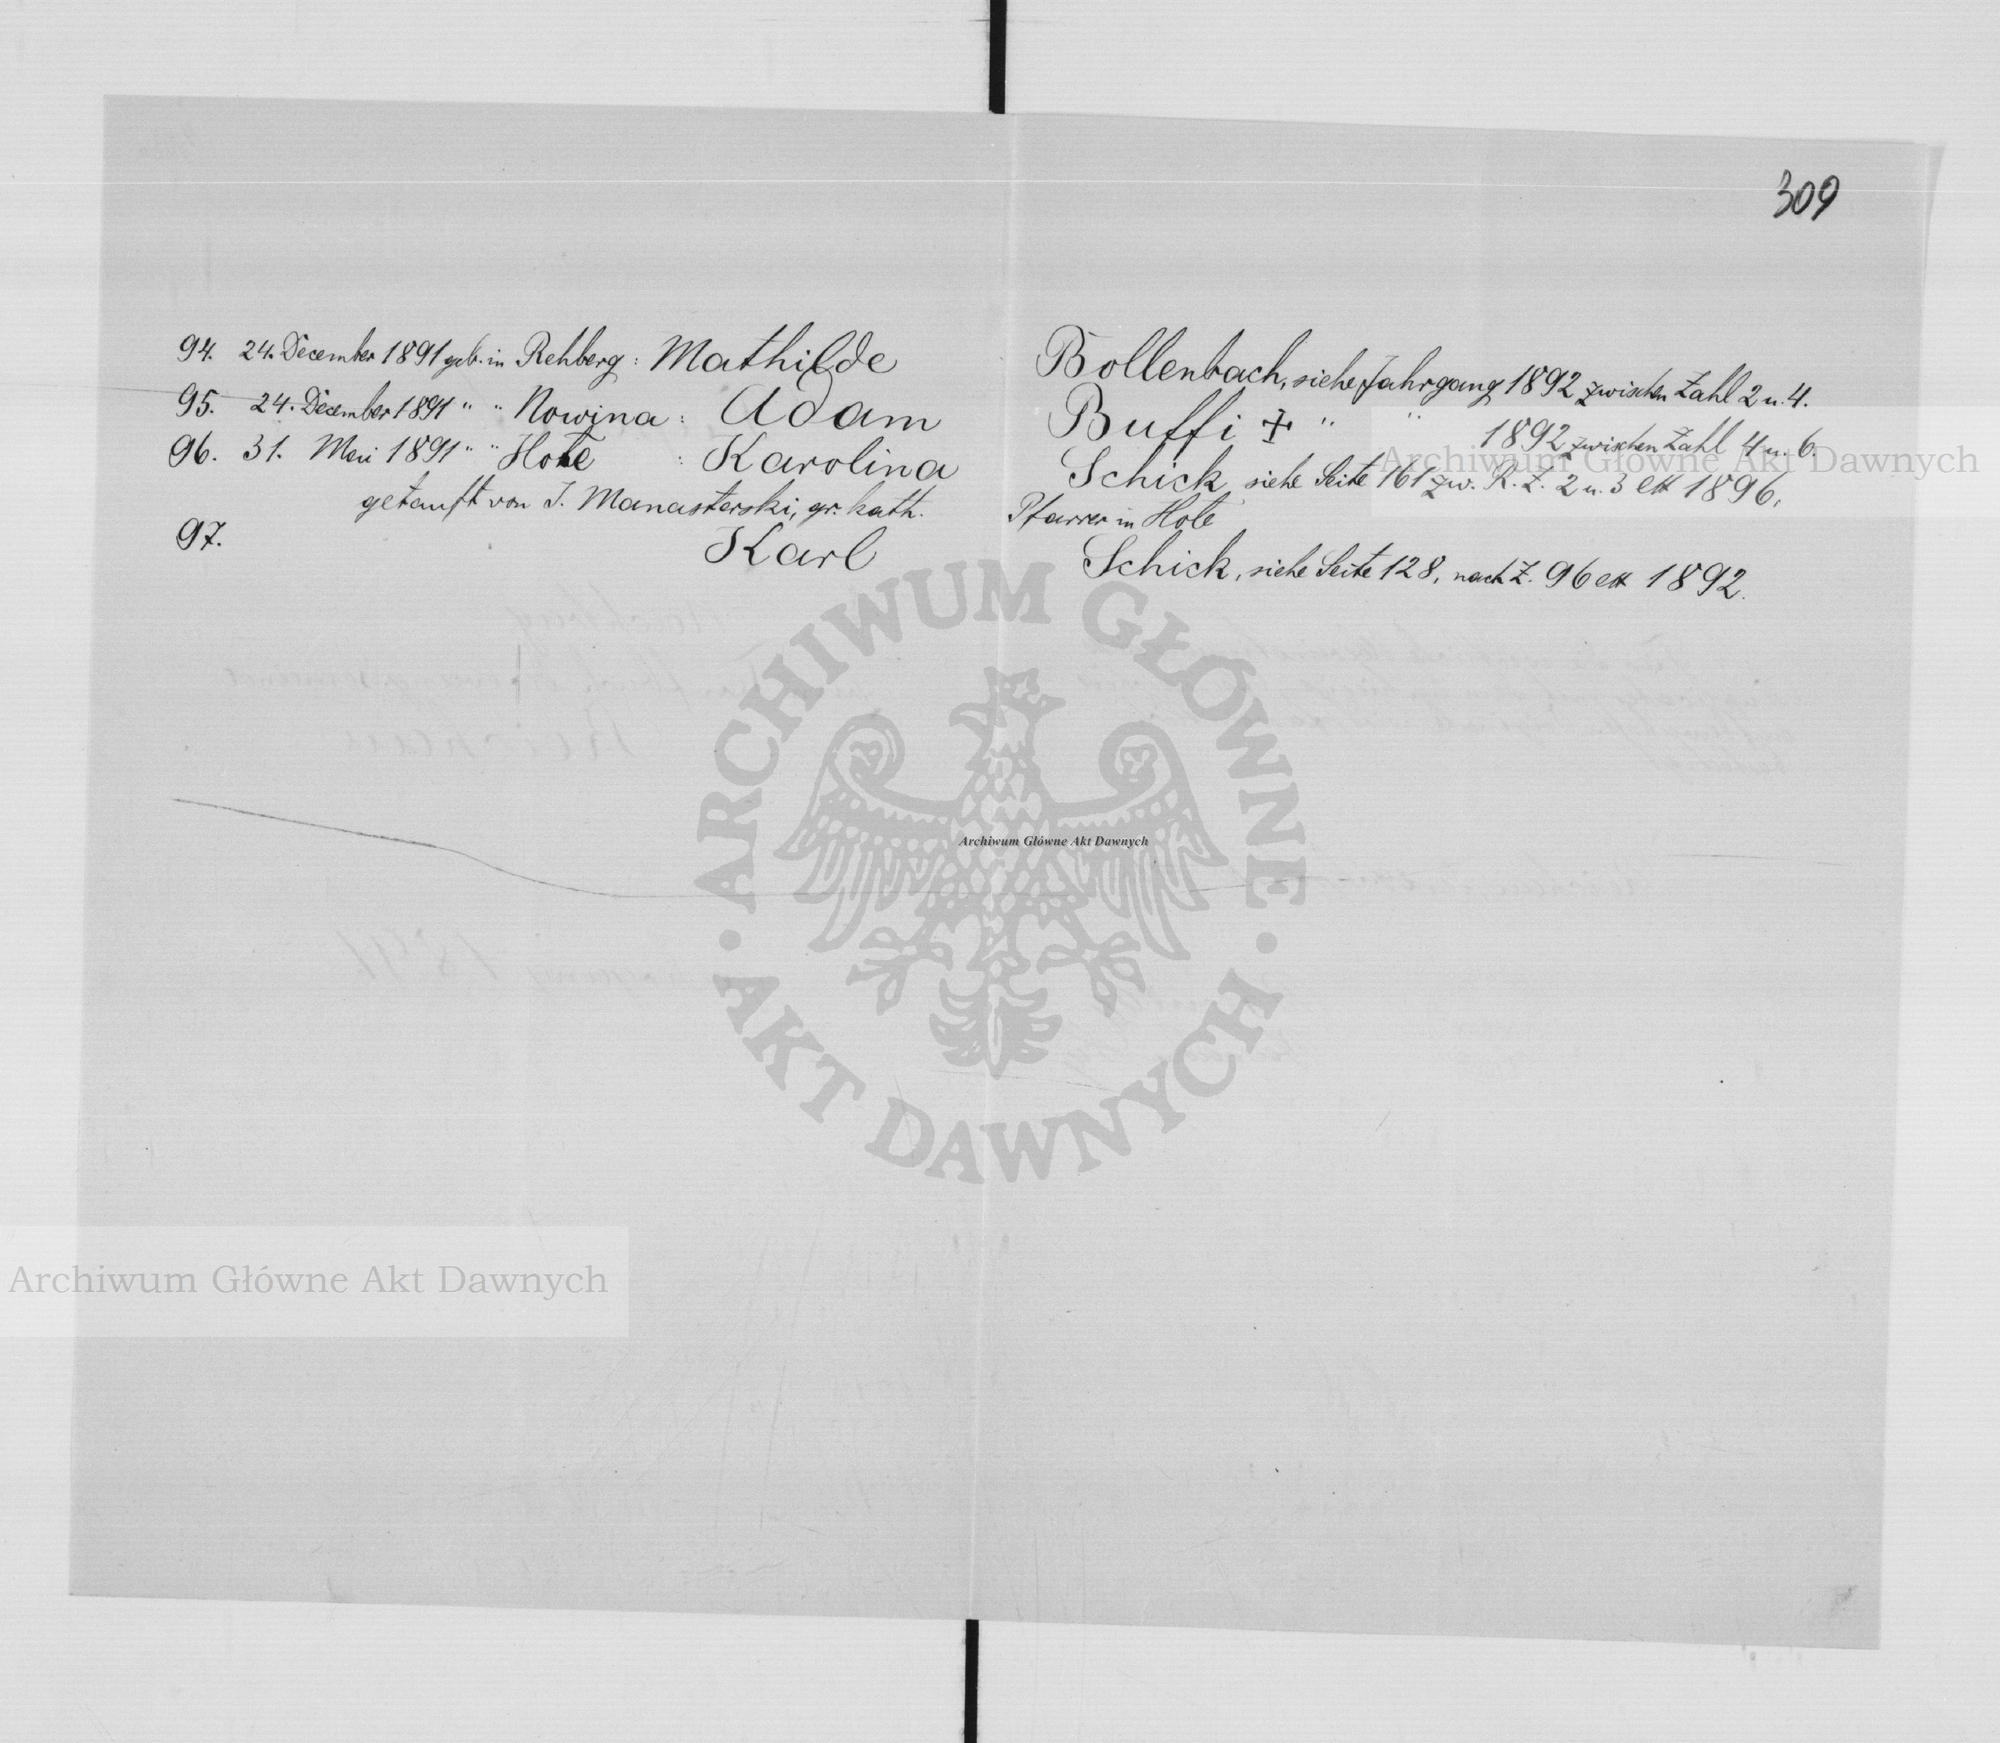 309
94. 24. December 1891 geb. in Rehberg : Mathilde Bollenbach, siehe Jahrgang 1892 zwischen Zahl 2 u. 4.
95. 24. December 1891 " " Nowina : Adam Buffi + " " 1892 zwischen Zahl 4 u. 6.
96. 31. Mai 1891 " " Hole : Karolina Schick, siehe Seite 161 zw. R. Z. 2 u. 3 1896.
getauft von J. Manasterski, gr. kath. Pfarrer in Hole
97. Karl Schick, siehe Seite 128, nach Z. 96 1892.
ARCHIWUM GŁÓWNE AKT DAWNYCH
Archiwum Główne Akt Dawnych
Archiwum Główne Akt Dawnych
Archiwum Główne Akt Dawnych